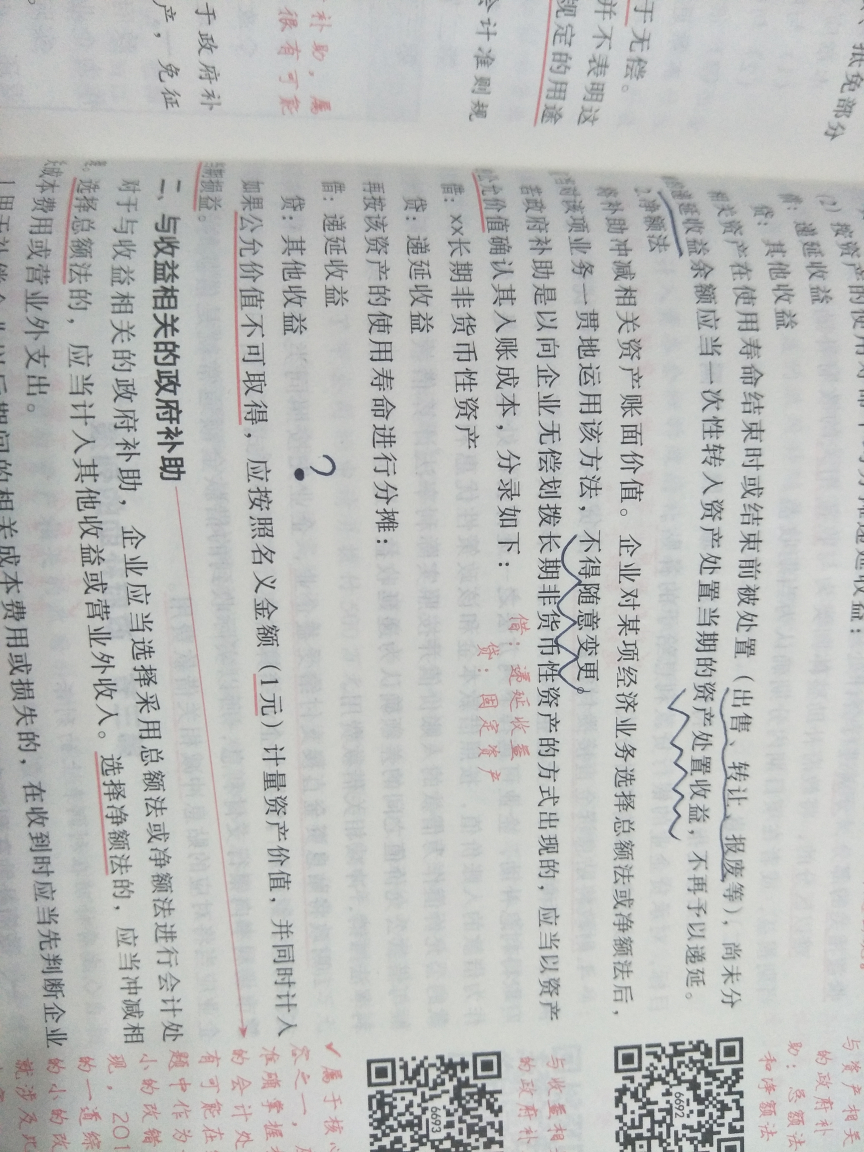 抵免部分
于无偿。
并不表明这
规定的用途
会计准则规
补助，属
很有可能
于政府补
产，免征
借：递延收益
贷：其他收益
相关资产在使用寿命结束时或结束前被处置（出售、转让、报废等），尚未分
递延收益余额应当一次性转入资产处置当期的资产处置收益，不再予以递延。
净额法
补助冲减相关资产账面价值。企业对某项经济业务选择总额法或净额法后，
对该项业务一贯地运用该方法，不得随意变更。
政府补助是以向企业无偿划拨长期非货币性资产的方式出现的，应当以资产
公允价值确认其入账成本，分录如下：
借：递延收益
贷：固定资产
借：xx长期非货币性资产
贷：递延收益
再按该资产的使用寿命进行分摊：
借：递延收益
贷：其他收益
?
如果公允价值不可取得，应按照名义金额（1元）计量资产价值，并同时计入
期损益。
二、与收益相关的政府补助
对于与收益相关的政府补助，企业应当选择采用总额法或净额法进行会计处
选择总额法的，应当计入其他收益或营业外收入。选择净额法的，应当冲减相
成本费用或营业外支出。
用于补偿企业以后期间的相关成本费用或损失的，在收到时应当先判断企业
与资产相关
的政府补
助：总额法
和净额法
6692
与收益相
的政府补
6693
✓属于核心
容之一，
准确掌握
的会计处
有可能在
题中作为
小的改错
现，201
的一道综
的小的改
就涉及此